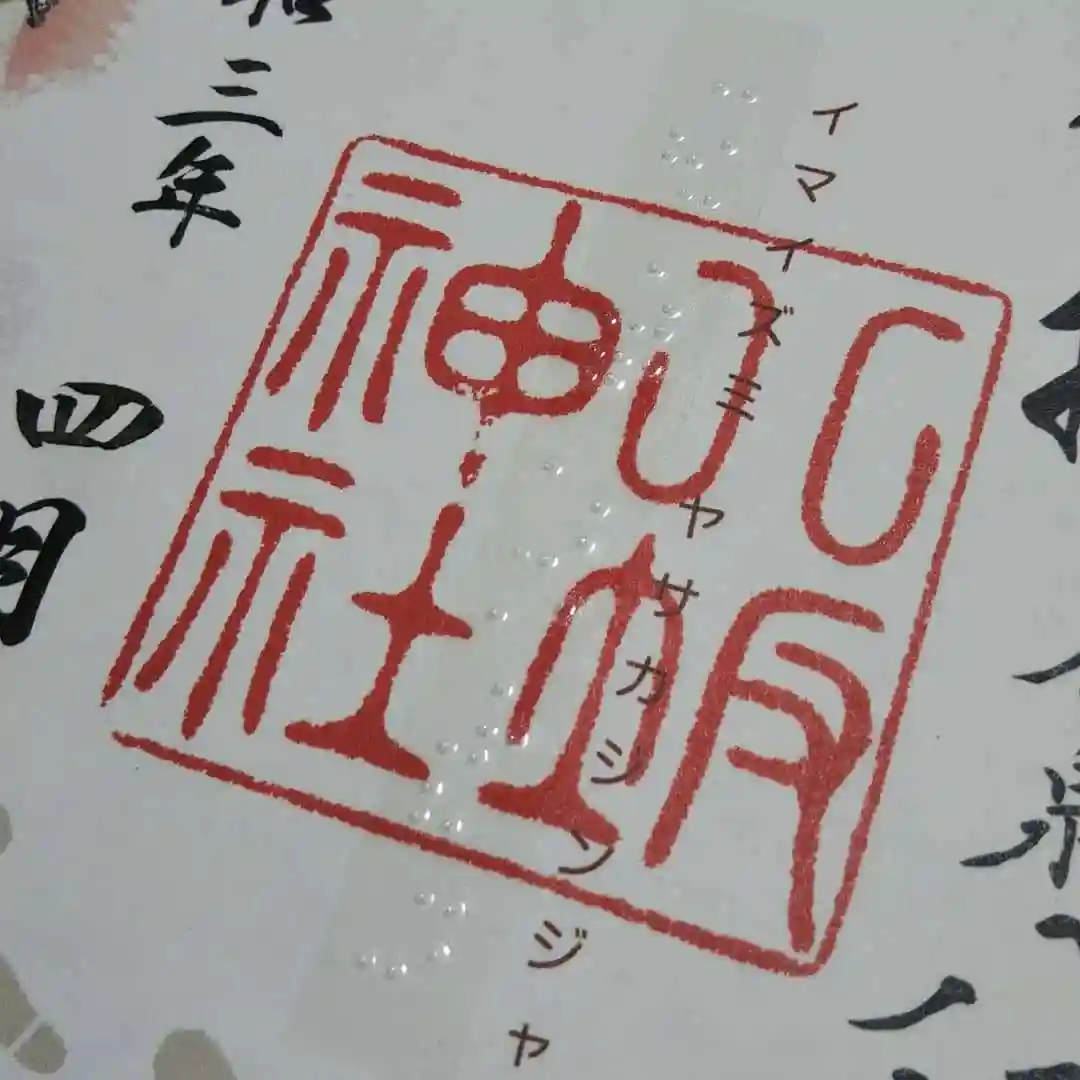 イマイズミヤサカシンジヤ
八坂
神社
三年
四月